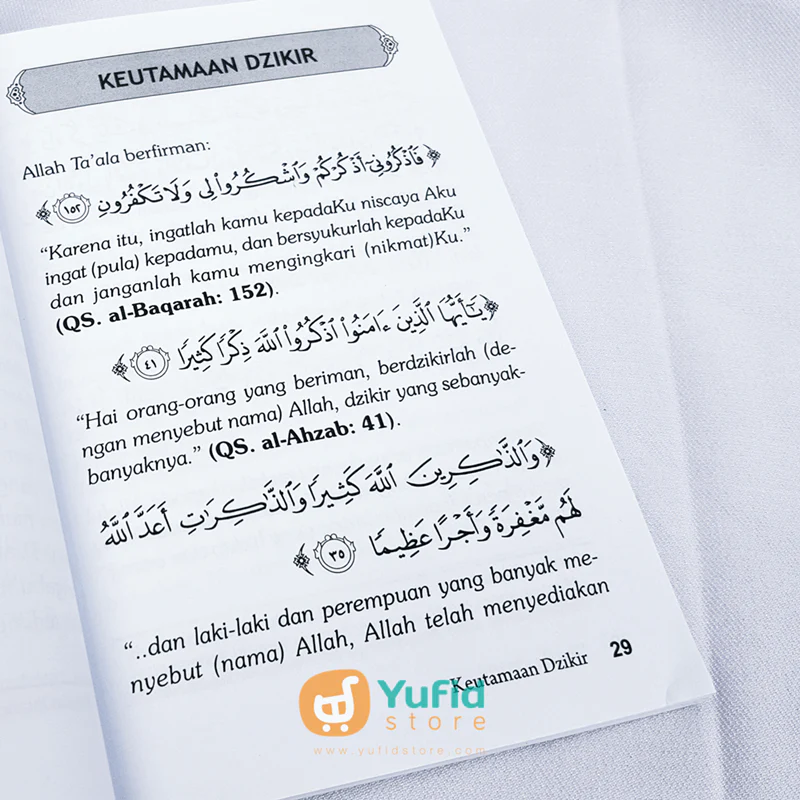 KEUTAMAAN DZIKIR
Allah Ta'ala berfirman:
﴿فَٱذْكُرُونِىٓ أَذْكُرْكُمْ وَٱشْكُرُوا۟ لِى وَلَا تَكْفُرُونِ ١٥٢﴾
“Karena itu, ingatlah kamu kepadaKu niscaya Aku
ingat (pula) kepadamu, dan bersyukurlah kepadaKu
dan janganlah kamu mengingkari (nikmat)Ku.”
(QS. al-Baqarah: 152).
﴿يَـٰٓأَيُّهَا ٱلَّذِينَ ءَامَنُوا۟ ٱذْكُرُوا۟ ٱللَّهَ ذِكْرًا كَثِيرًا ٤١﴾
“Hai orang-orang yang beriman, berdzikirlah (de-
ngan menyebut nama) Allah, dzikir yang sebanyak-
banyaknya.” (QS. al-Ahzab: 41).
﴿وَٱلذَّٰكِرِينَ ٱللَّهَ كَثِيرًا وَٱلذَّٰكِرَٰتِ أَعَدَّ ٱللَّهُ
لَهُم مَّغْفِرَةً وَأَجْرًا عَظِيمًا ٣٥﴾
“..dan laki-laki dan perempuan yang banyak me-
nyebut (nama) Allah, Allah telah menyediakan
Keutamaan Dzikir 29
Yufid
store
www.yufidstore.com